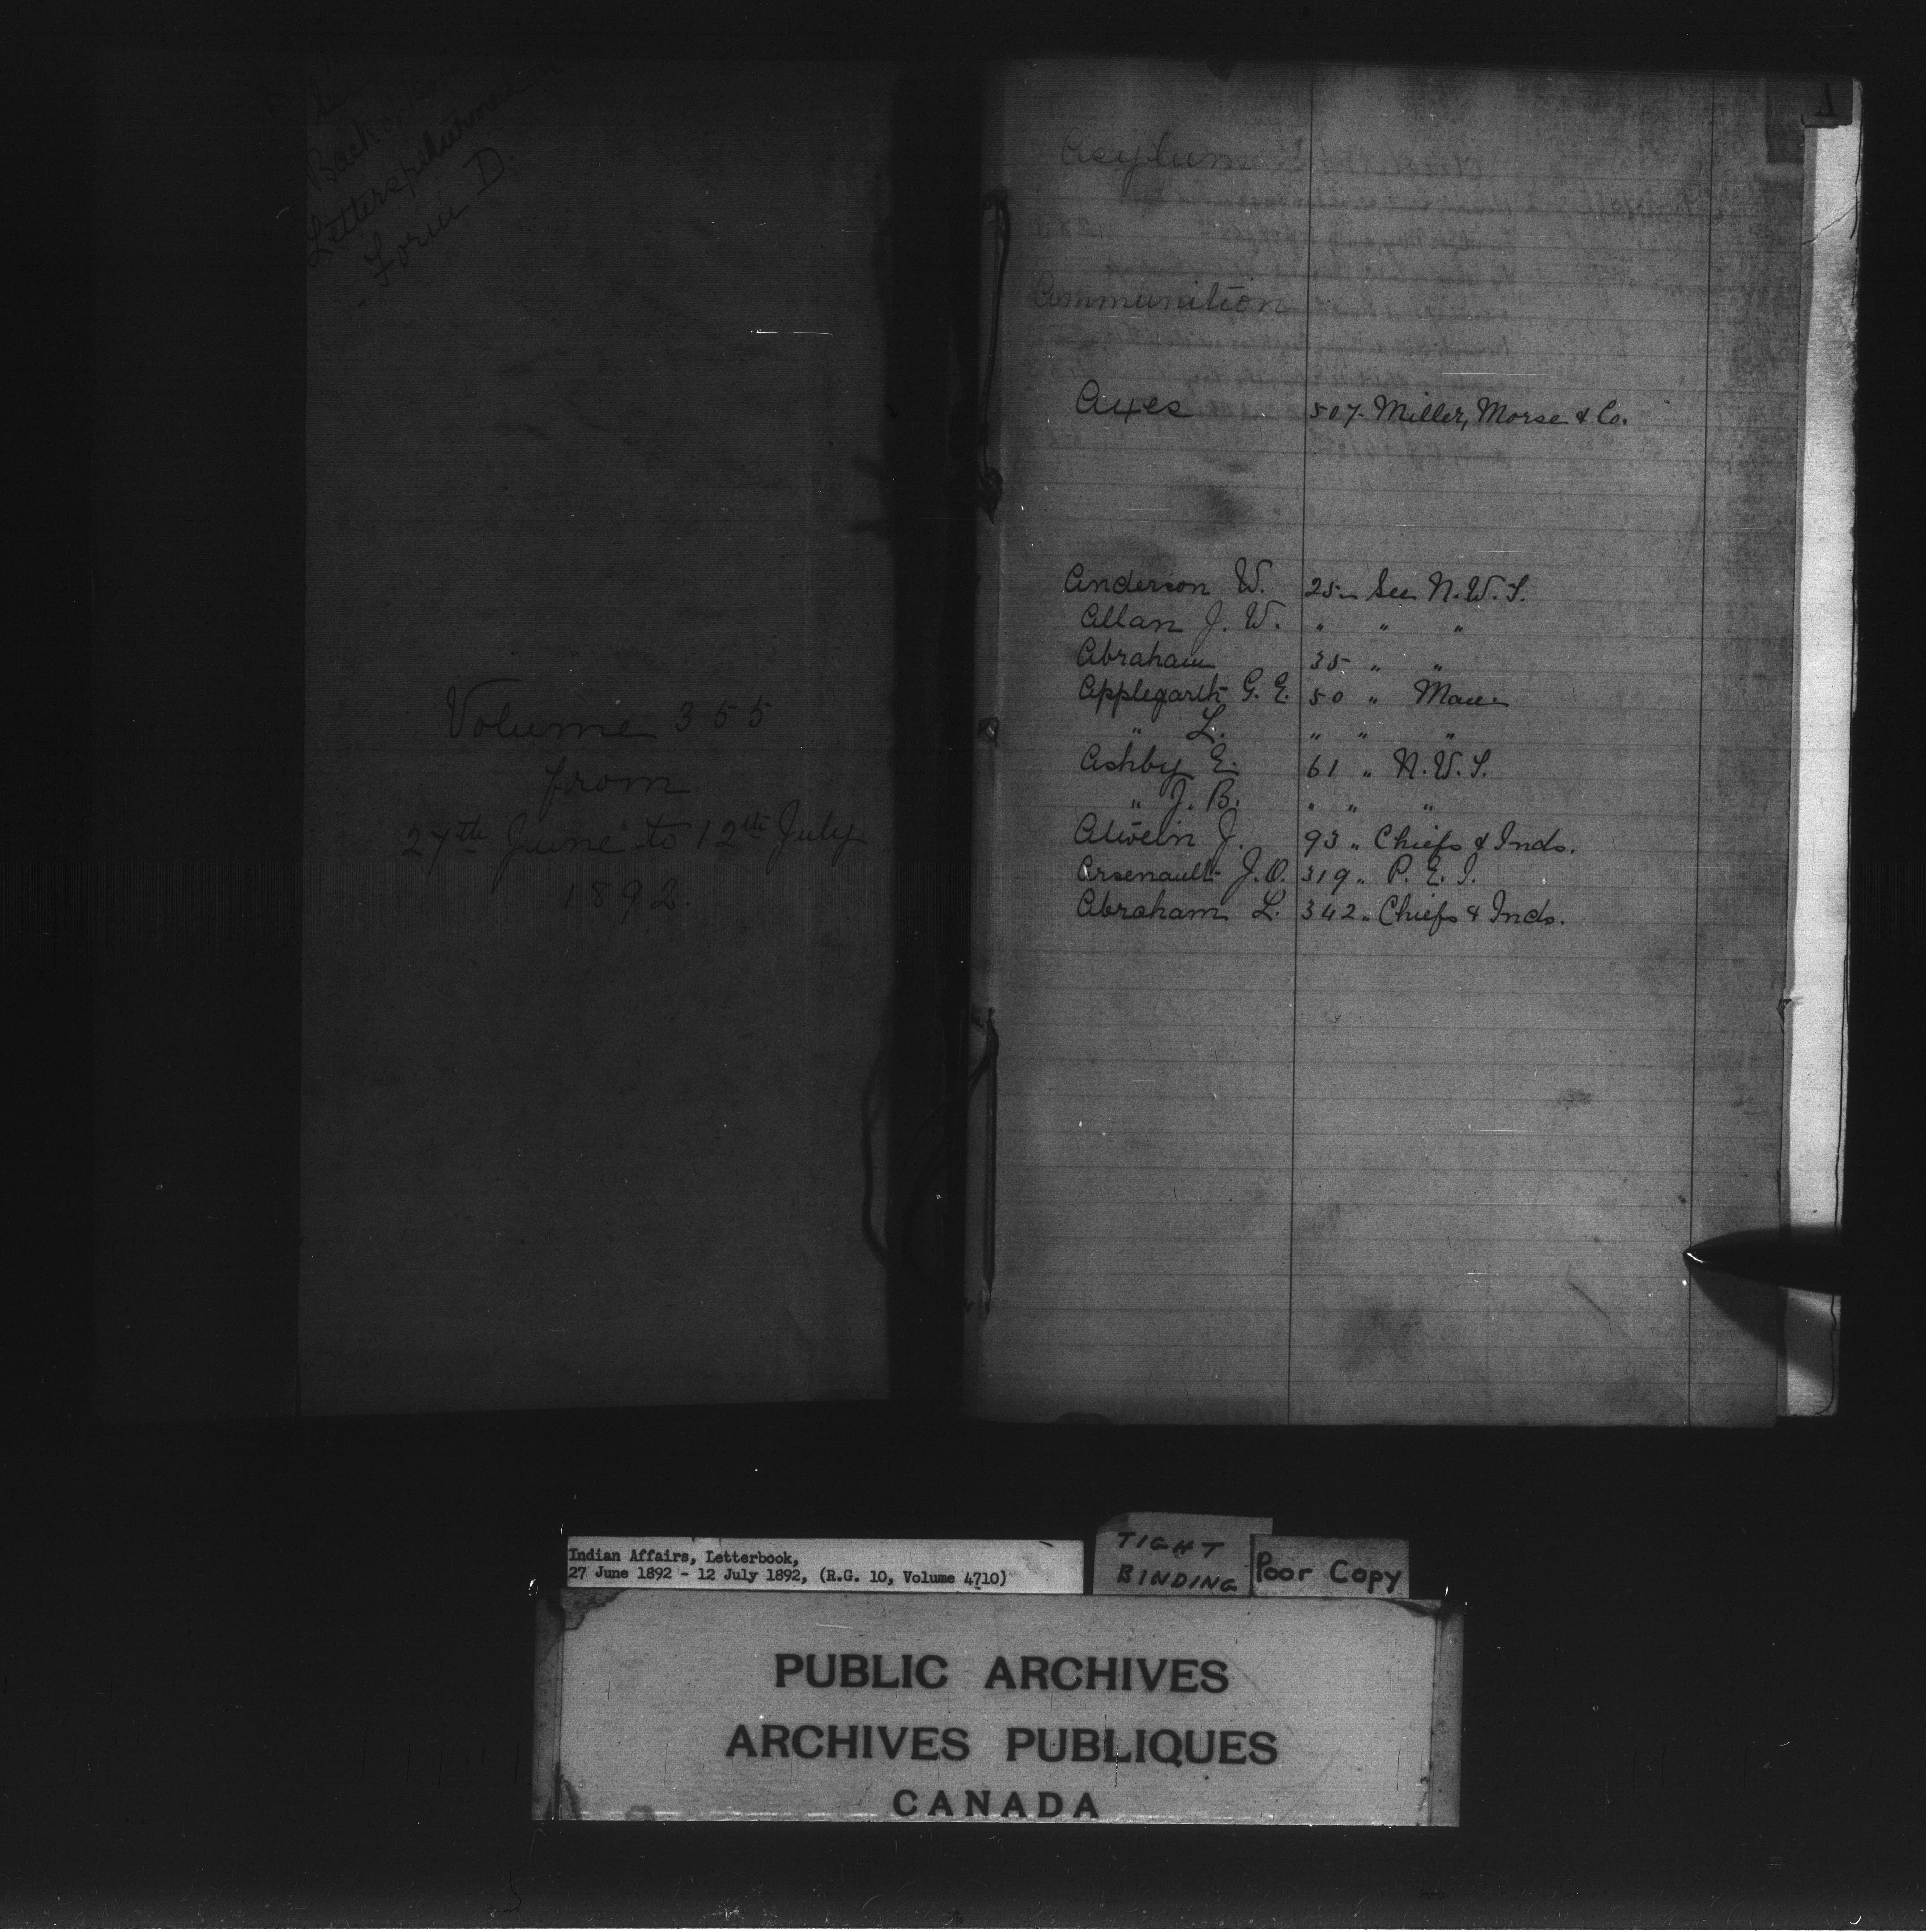 Back of
Letters returned in
Form D.
Volume 355
from
27th June to 12th July
1892.
A
Asylum
Ammunition
Axes 507- Miller, Morse & Co.
Anderson W. 25- See N.W.T.
Allan J. W. " " "
Abraham 35 " "
Applegarth G. E. 50 " Man
" L. " " "
Ashby E. 61 " N.W.T.
" J. B. " " "
J. 93 " Chiefs & Inds.
Arsenault J.O. 319 " P. E. I.
Abraham L. 342 " Chiefs & Inds.
Indian Affairs, Letterbook,
27 June 1892 - 12 July 1892, (R.G. 10, Volume 4710)
TIGHT
BINDING
Poor Copy
PUBLIC ARCHIVES
ARCHIVES PUBLIQUES
CANADA